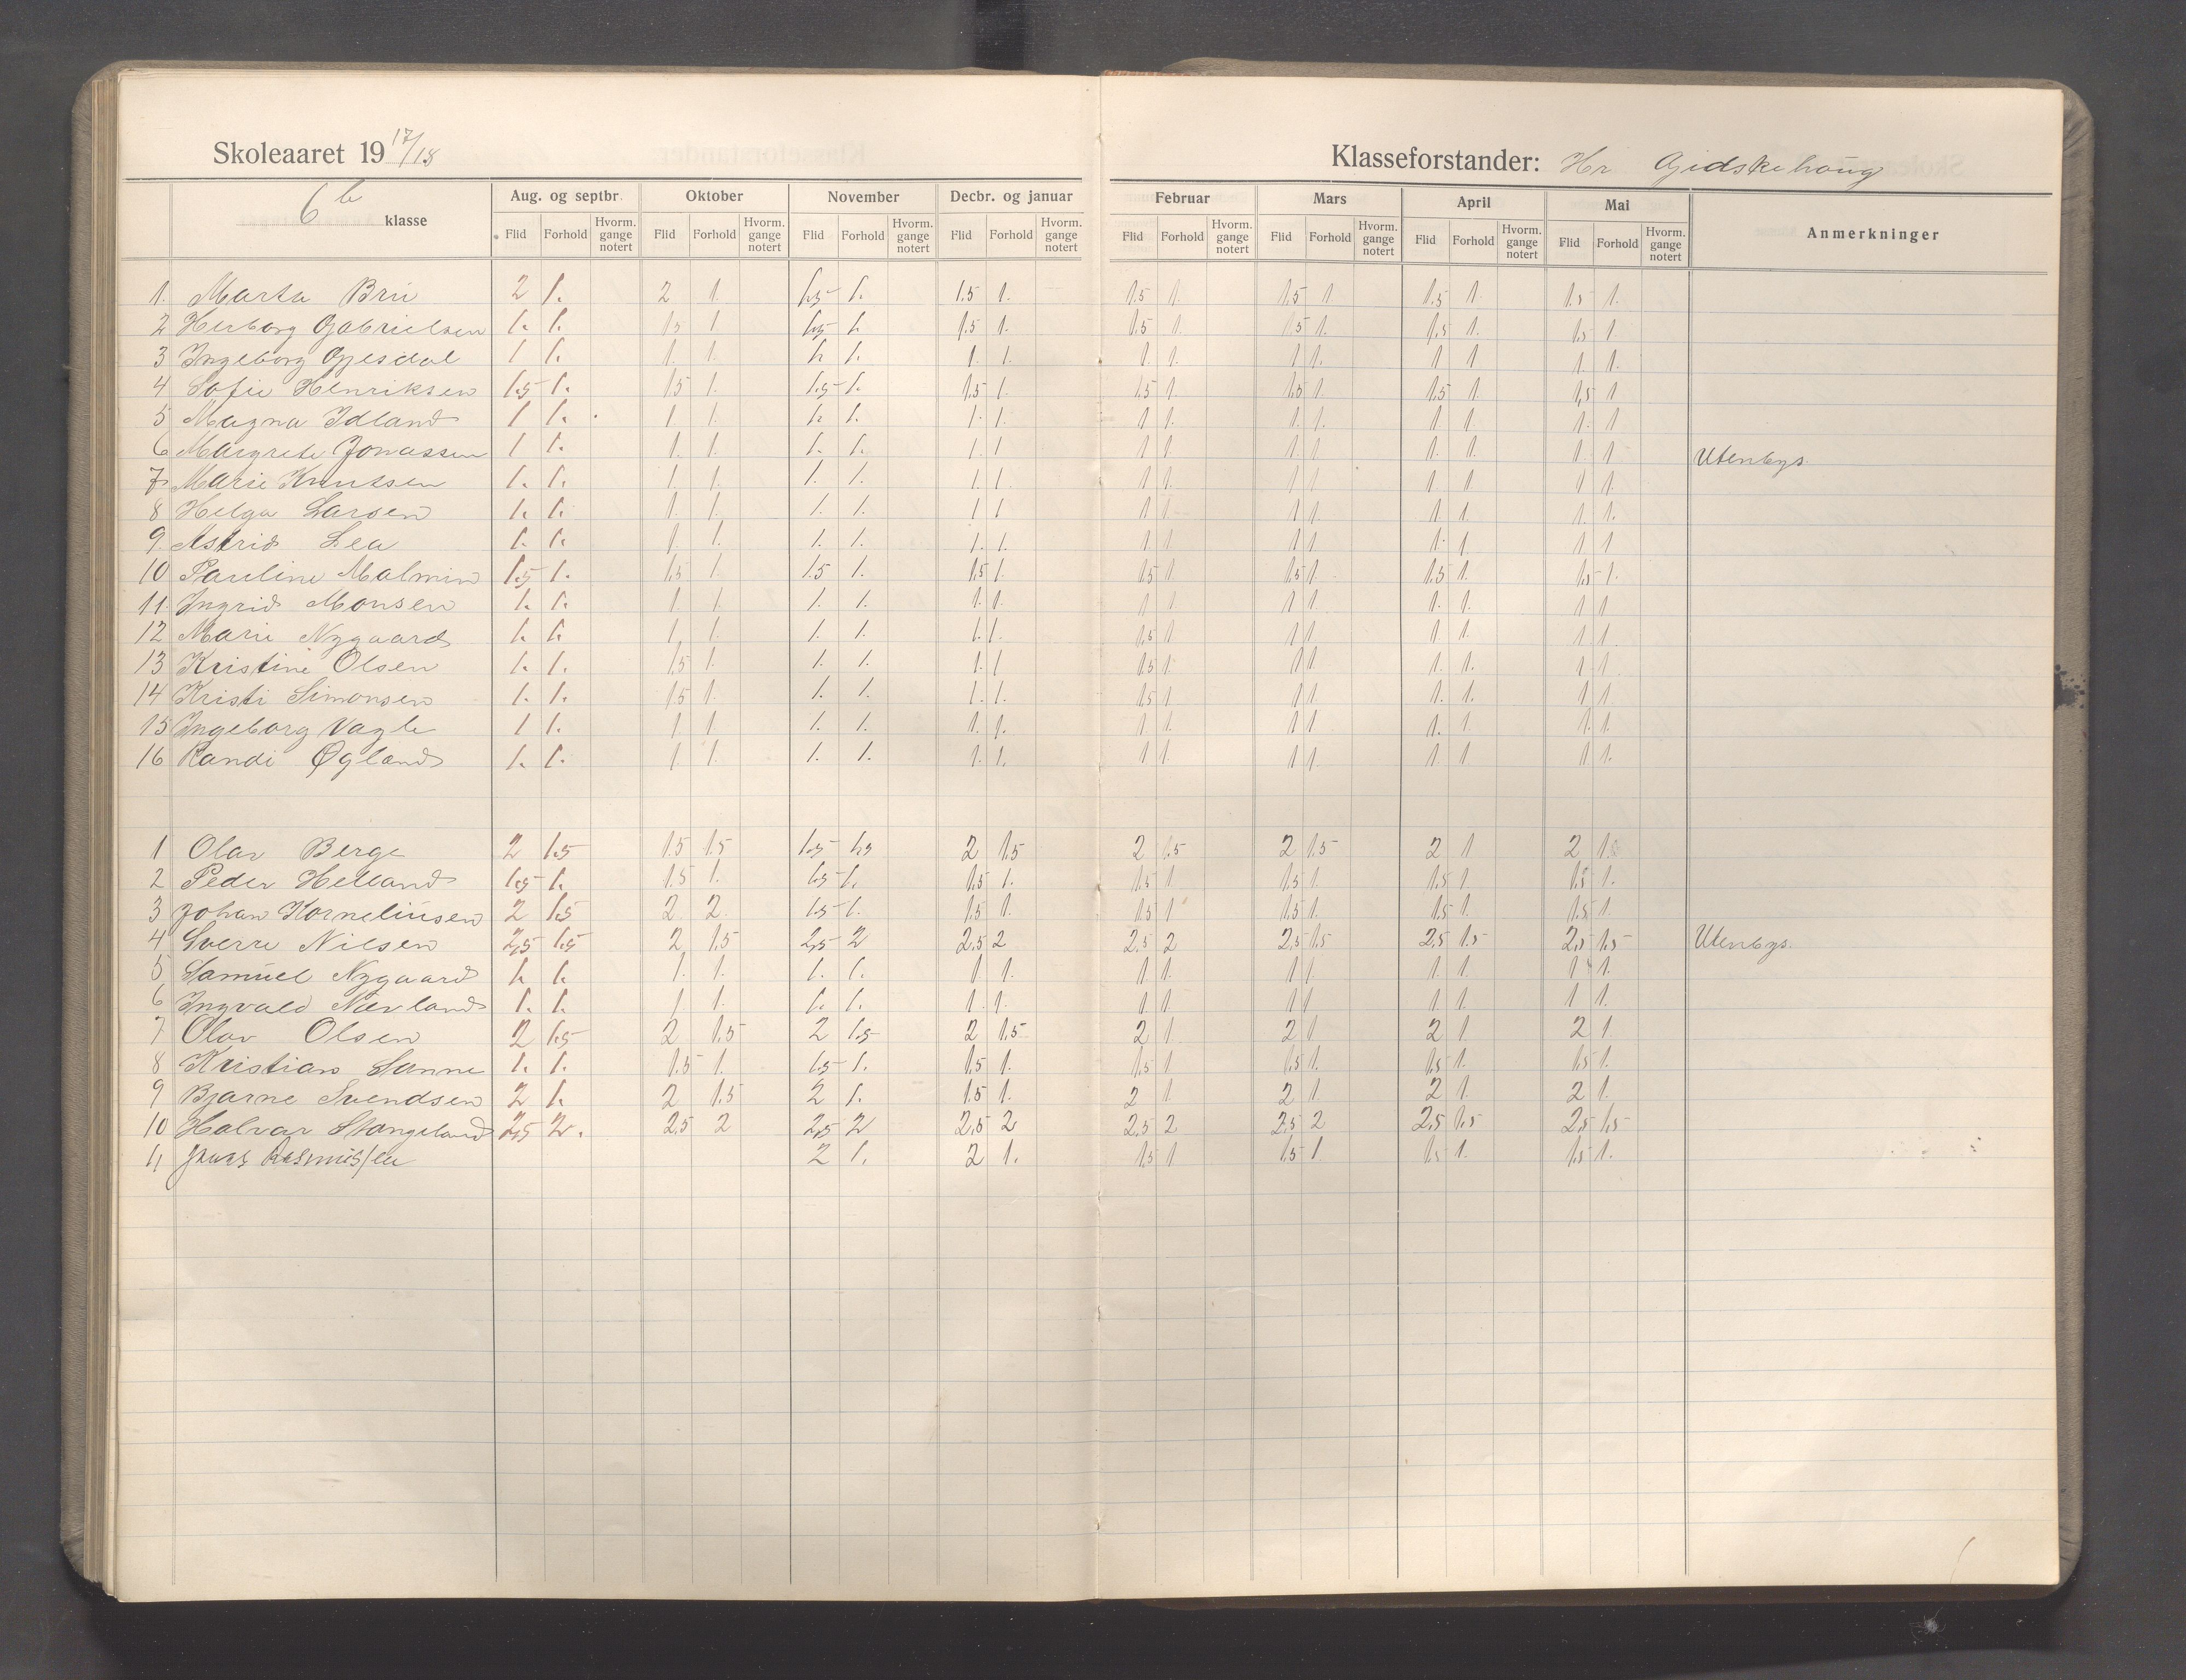 Skoleaaret 19 17/18 Klasseforstander: Hr Gjidskehaug
6b klasse Aug. og septbr. Oktober November Decbr. og januar Februar Mars April Mai Anmerkninger
Flid Forhold Hvorm. gange notert Flid Forhold Hvorm. gange notert Flid Forhold Hvorm. gange notert Flid Forhold Hvorm. gange notert Flid Forhold Hvorm. gange notert Flid Forhold Hvorm. gange notert Flid Forhold Hvorm. gange notert Flid Forhold Hvorm. gange notert
1. Marta Brú 2 1. 2 1. 1.5 1. 1.5 1. 1.5 1. 1.5 1. 1.5 1. 1.5 1.
2 Herborg Gabrielsen 1. 1. 1.5 1 1.5 1. 1.5 1. 1.5 1. 1.5 1. 1.5 1. 1.5 1
3 Ingeborg Gjesdal 1 1. 1. 1. 1. 1. 1. 1. 1 1. 1 1. 1 1 1. 1.
4 Sofie Henriksen 1.5 1. 1.5 1. 1.5 1. 1.5 1. 1.5 1. 1.5 1. 1.5 1 1.5 1
5 Magna Idland 1 1. 1 1. 1. 1. 1. 1. 1 1. 1 1. 1. 1. 1. 1
6 Margrete Jonassen 1 1. 1. 1. 1. 1. 1. 1 1 1 1 1 1. 1. 1. 1 Utenbys.
7 Marie Knutsen 1. 1. 1. 1. 1. 1. 1. 1. 1 1. 1 1 1 1 1 1.
8 Helga Larsen 1. 1. 1. 1. 1. 1. 1. 1 1 1 1 1. 1 1. 1. 1.
9. Astrid Lea 1. 1. 1. 1. 1. 1. 1. 1. 1 1 1 1 1. 1 1 1
10 Pauline Malmin 1.5 1. 1.5 1 1.5 1. 1.5 1. 1.5 1 1.5 1. 1.5 1. 1.5 1.
11. Ingrid Monsen 1. 1. 1. 1. 1. 1. 1. 1. 1 1 1 1 1. 1. 1 1
12 Marie Nygaard 1. 1. 1. 1. 1. 1. 1. 1. 1.5 1 1 1 1 1. 1 1.
13 Kristine Olsen 1. 1. 1.5 1. 1. 1. 1. 1 1.5 1. 1 1 1. 1. 1 1.
14 Kristi Simonsen 1. 1. 1.5 1. 1. 1. 1. 1. 1.5 1 1 1 1. 1. 1 1
15 Ingeborg Vagle 1 1. 1 1. 1. 1. 1. 1. 1 1 1 1 1. 1 1. 1.
16 Randi Øgland 1. 1. 1 1. 1. 1. 1. 1. 1 1 1 1. 1. 1. 1 1.
1 Olav Berge 2 1.5 1.5 1.5 1.5 1.5 2 1.5 2 1.5 2 1.5 2 1 2 1
2 Peder Helland 1.5 1. 1.5 1. 1.5 1. 1.5 1. 1.5 1 1.5 1. 1.5 1 1.5 1.
3 Johan Korneliúsen 2 1.5 2 2 1.5 1. 1.5 1. 1.5 1 1.5 1. 1.5 1. 1.5 1.
4 Sverre Nilsen 2,5 1.5 2 1.5 2,5 2 2,5 2 2,5 2 2,5 1.5 2,5 1.5 2,5 1.5 Utenbys.
5 Samúel Nygaard 1. 1. 1. 1. 1. 1. 1 1. 1 1. 1 1 1. 1. 1 1.
6 Ingvald Nærland 1. 1. 1 1. 1. 1. 1. 1. 1 1 1 1 1. 1. 1 1.
7 Olav Olsen 2 1.5 2 1.5 2 1.5 2 1.5 2 1 2 1 2 1 2 1.
8 Kristian Sanne 1. 1. 1.5 1. 1.5 1. 1.5 1. 1.5 1 1.5 1. 1.5 1. 1.5 1.
9 Bjarne Svendsen 2 1. 2 1.5 2 1. 1.5 1. 2 1 2 1 2 1. 2 1.
10 Halvar Stangeland 2,5 2. 2,5 2 2,5 2 2,5 2 2,5 2 2,5 2 2,5 1.5 2,5 1.5
11 Rasmussen 2 1. 2 1. 1.5 1 1.5 1 1.5 1. 1.5 1.